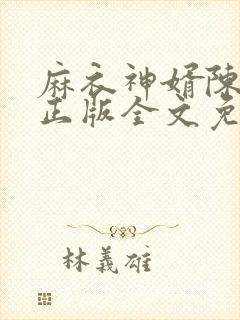 麻衣神婿陈
正版全文免
林義雄